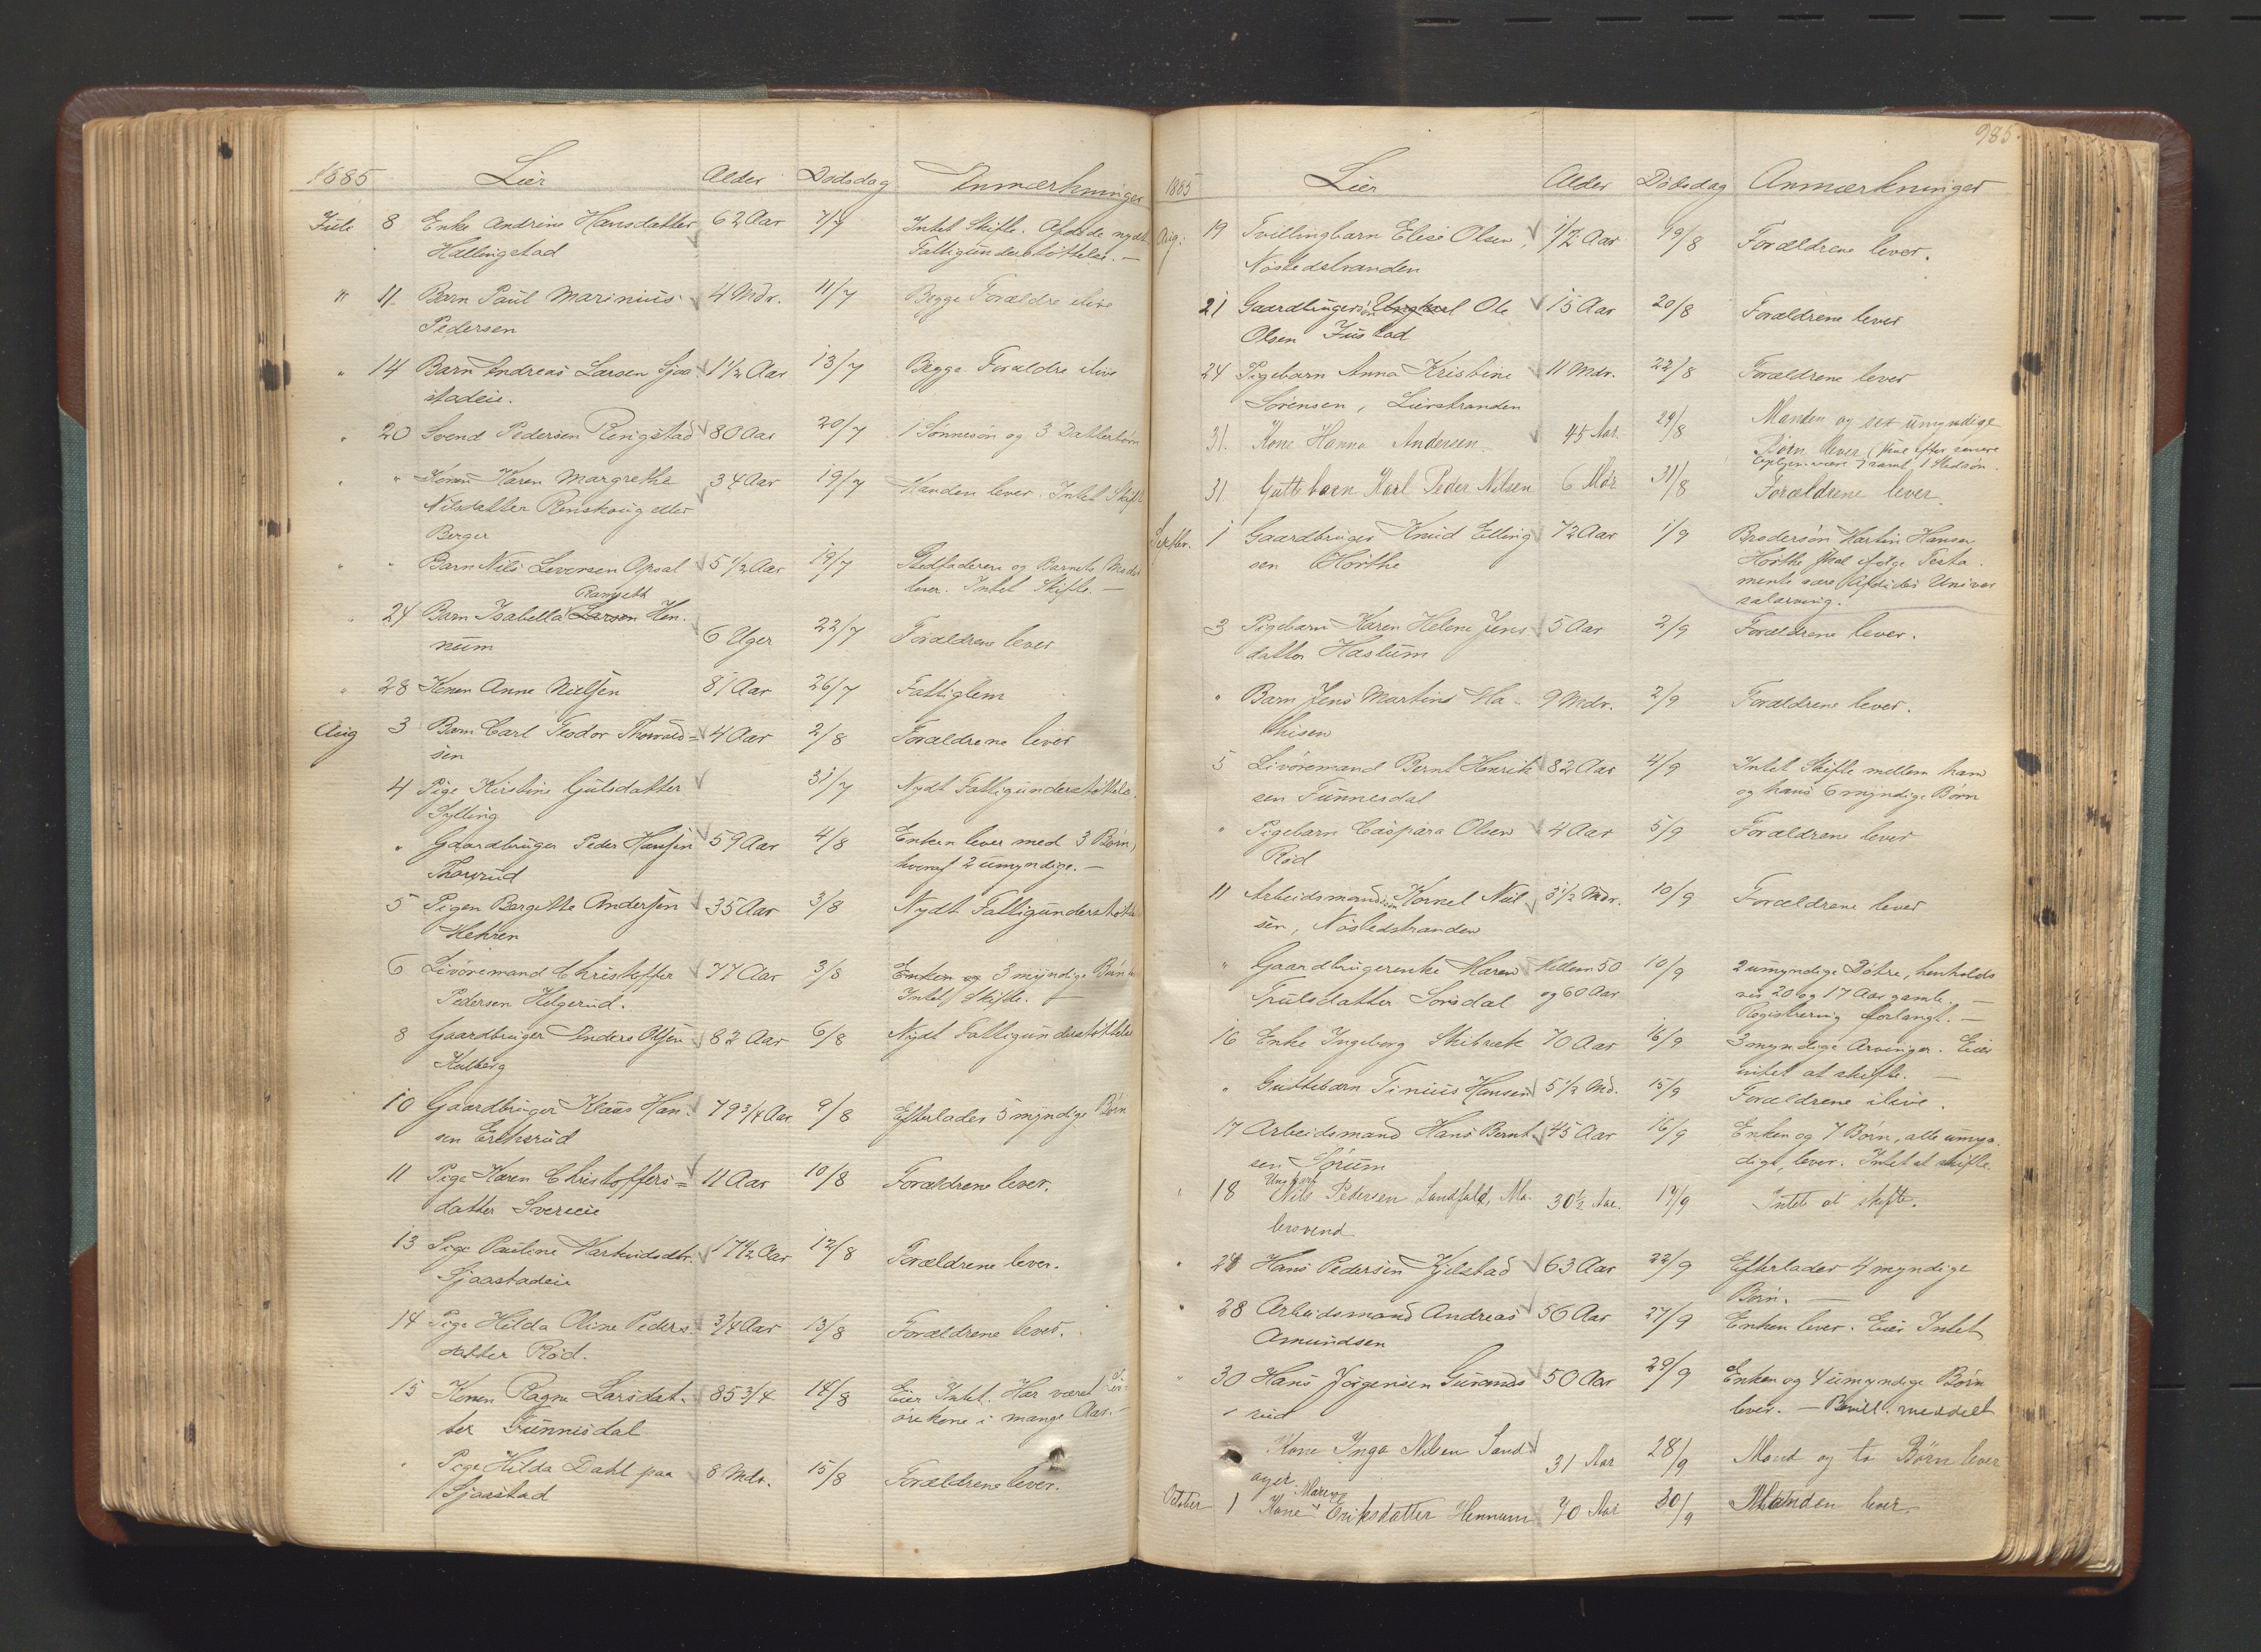 1885 Lier Alder Dødsdag Anmærkninger
Juli 8 Enke Andrine Hansdatter 62 Aar 7/7 Intet Skifte. Afdøde nydt
Hallingstad Fattigunderstøttelse. —
" 11. Barn Paul Marinius 4 Mdr. 11/7 Begge Forældre ilive
Pedersen
" 14 Barn Andreas Larsen Sjaa- 1 1/2 Aar 13/7 Begge Forældre ilive
stadeie.
" 20 Svend Pedersen Rengstad 80 Aar 20/7 1 Sønnesøn og 3 Datterbørn
" " Konen Karen Margrethe 34 Aar 19/7 Manden lever. Intet Skifte
Nilsdatter Renskoug eller
Berger
" " Barn Nils Leversen Opsal 5 1/2 Aar 19/7 Stedfaderen og Barnets Moder
lever. Intet Skifte. —
Ramseth
" 24 Barn Isabella Larsen Hen- 6 Uger 22/7 Forældrene lever
num
" 28 Konen Anne Nielsen 81 Aar 26/7 Fattiglem
Aug 3 Barn Carl Teodor Thorvald= 4 Aar 2/8 Forældrene lever
sen
4 Pige Kirstine Gulsdatter 31/7 Nydt Fattigunderstøttelse.
Sylling
" Gaardbruger Peder Hansen 59 Aar 4/8 Enken lever med 3 Børn,
Thorsrud hvoraf 2 umyndige. —
5 Pigen Bergitte Andersen 35 Aar 3/8 Nydt Fattigunderstøttelse
Hehren
6 Livøremand Christoffer 77 Aar 3/8 Enken og 3 myndige Børn
Pedersen Helgerud. Intet Skifte. —
8 Gaardbruger Anders Olsen 82 Aar 6/8 Nydt Fattigunderstøttelse
Kulberg
10 Gaardbruger Klaus Han- 79 3/4 Aar 9/8 Efterlader 5 myndige Børn
sen Eriksrud
11 Pige Karen Christoffers= 11 Aar 10/8 Forældrene lever.
datter Svereeie
13 Pige Pauline Narvidsdtr. 17 1/2 Aar 12/8 Forældrene lever.
Sjaastadeie
14 Pige Hilda Oline Peders- 3/4 Aar 13/8 Forældrene lever.
datter Rød.
15 Konen Ragne Larsdat- 85 3/4 14/8 Eier Intet. Har været Liv-
ter Tunnesdal ørekone i mange Aar. —
" Pige Hilda Dahl paa 8 Mdr. 15/8 Forældrene lever.
Sjaastad
985.
1885 Lier Alder Dødsdag Anmærkninger
Aug. 19 Tvillingbarn Elise Olsen, 1/2 Aar 19/8 Forældrene lever.
Nøstedstranden
21 Gaardbrugersøn Ungkarl Ole 15 Aar 20/8 Forældrene lever
Olsen Justad
24 Pigebarn Anna Kristine 11 Mdr. 22/8 Forældrene lever
Sørensen, Lierstranden
31. Kone Hanna Andersen 45 Aar. 29/8 Manden og sex umyndige
Børn lever (skal efter senere
Oplysn. være 7 samt 1 Stedsøn.
31 Guttebarn Karl Peder Nilsen 6 Mdr 31/8 Forældrene lever
Septbr. 1 Gaardbruger Knud Elling- 72 Aar 1/9 Brodersøn Martin Hansen
sen Hørthe Hørthe skal ifølge Testa-
mente være Afdødes Univer-
salarving.
3 Pigebarn Karen Helene Jens- 5 Aar 2/9 Forældrene lever.
datter Haslum
" Barn Jens Martins Ma- 9 Mdr. 2/9 Forældrene lever.
thisen
5 Livøremand Bernt Henrik- 82 Aar 4/9 Intet Skifte mellem ham
sen Tunnesdal og hans 6 myndige Børn
" Pigebarn Caspara Olsen 4 Aar 5/9 Forældrene lever
Rød
11 Arbeidsmandssøn Kornel Niel- 3 1/2 Mdr. 10/9 Forældrene lever
sen, Nøstedstranden
" Gaardbrugerenke Maren Mellem 50 10/9 2 umyndige Døtre, henholds-
Trulsdatter Sørsdal og 60 Aar vis 20 og 17 Aar gamle. —
Registrering forlangt. —
16 Enke Ingeborg Skibræk 70 Aar 16/9 3 myndige Arvinger. Eier
intet at skifte. —
" Guttebarn Tinius Hansen 5 1/2 Md. 15/9 Forældrene ilive.
17 Arbeidsmand Hans Bernt- 45 Aar 16/9 Enken og 7 Børn, alle umyn-
sen Sørum dige, lever. Intet at skifte.
Ungkarl
" 18 Nils Pedersen Landfald, Ma- 30 1/2 Aar. 17/9 Intet at skifte.
lersvend
" 24 Hans Pedersen Kjelstad 63 Aar 22/9 Efterlader 4 myndige
Børn. —
" 28 Arbeidsmand Andreas 56 Aar 27/9 Enken lever. Eier Intet
Amundsen
" 30 Hans Jørgensen Gusands- 50 Aar 29/9 Enken og 4 umyndige Børn
rud lever. — Bevill. meddelt
Kone Inga Nilsen Sand- 31 Aar 28/9 Mand og to Børn lever
ager.
Maren
October 1 Kone Eriksdatter Hennum 70 Aar 30/9 Manden lever.